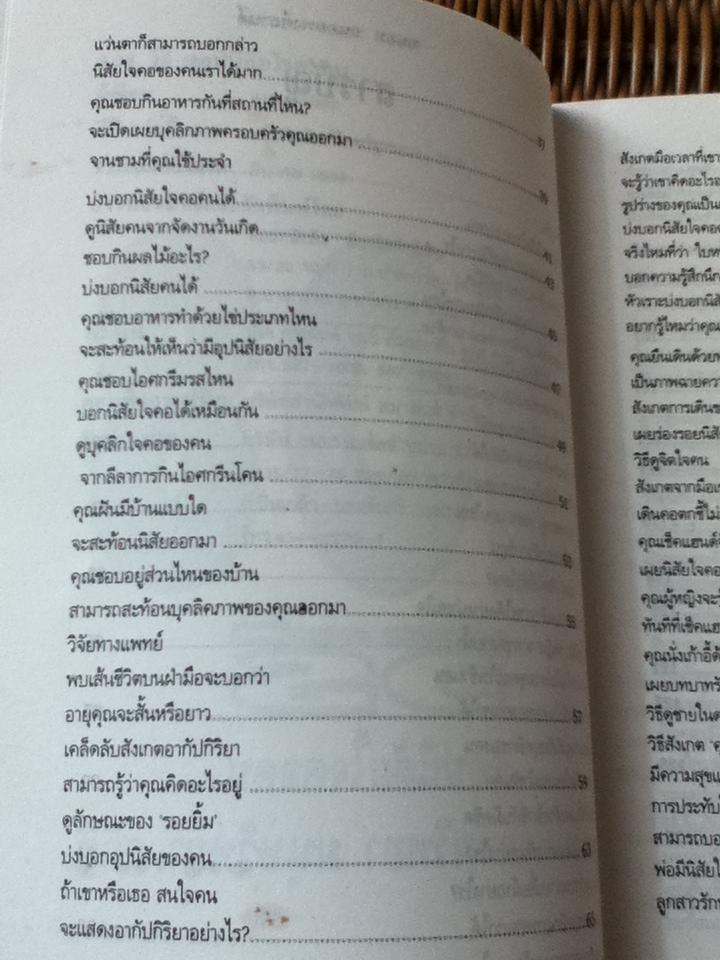 แว่นตาก็สามารถบอกกล่าว
นิสัยใจคอของคนเราได้มาก
คุณชอบกินอาหารกันที่สถานที่ไหน?
จะเปิดเผยบุคลิกภาพครอบครัวคุณออกมา
จานชามที่คุณใช้ประจำ
บ่งบอกนิสัยใจคอคนได้
ดูนิสัยคนจากจัดงานวันเกิด 41
ชอบกินผลไม้อะไร? 43
บ่งบอกนิสัยคนได้
คุณชอบอาหารทำด้วยไข่ประเภทไหน
จะสะท้อนให้เห็นว่ามีอุปนิสัยอย่างไร
คุณชอบไอศกรีมรสไหน
บอกนิสัยใจคอได้เหมือนกัน
ดูบุคลิกใจคอของคน
จากลีลาการกินไอศกรีมโคน 51
คุณฝันมีบ้านแบบใด
จะสะท้อนนิสัยออกมา 53
คุณชอบอยู่ส่วนไหนของบ้าน
สามารถสะท้อนบุคลิคภาพของคุณออกมา 55
วิจัยทางแพทย์
พบเส้นชีวิตบนฝ่ามือจะบอกว่า
อายุคุณจะสั้นหรือยาว 57
เคล็ดลับสังเกตอากัปกิริยา
สามารถรู้ว่าคุณคิดอะไรอยู่ 59
ดูลักษณะของ 'รอยยิ้ม'
บ่งบอกอุปนิสัยของคน 63
ถ้าเขาหรือเธอ สนใจคน
จะแสดงอากัปกิริยาอย่างไร? 65
สังเกตมือเวลาที่เขา
จะรู้ว่าเขาคิดอะไร
รูปร่างของคุณเป็น
บ่งบอกนิสัยใจคอ
จริงไหมที่ว่า
บอกความรู้สึก
หัวเราะบ่งบอก
อยากรู้ไหมว่าคุณ
คุณยืนเดินด้วย
เป็นภาพฉาย
สังเกตการเดิน
เผยร่องรอย
วิธีดูจิตใจคน
สังเกตจากมือ
เดินคอตกชี้
คุณเช็คแฮนด์
เผยนิสัยใจคอ
คุณผู้หญิงจะ
ทันทีที่เช็คแฮ
คุณนั่งเก้าอี้
เผยบทบาท
วิธีดูชายใน
วิธีสังเกต
มีความสุข
การประทับ
สามารถบอก
พ่อมีนิสัย
ลูกสาวรัก